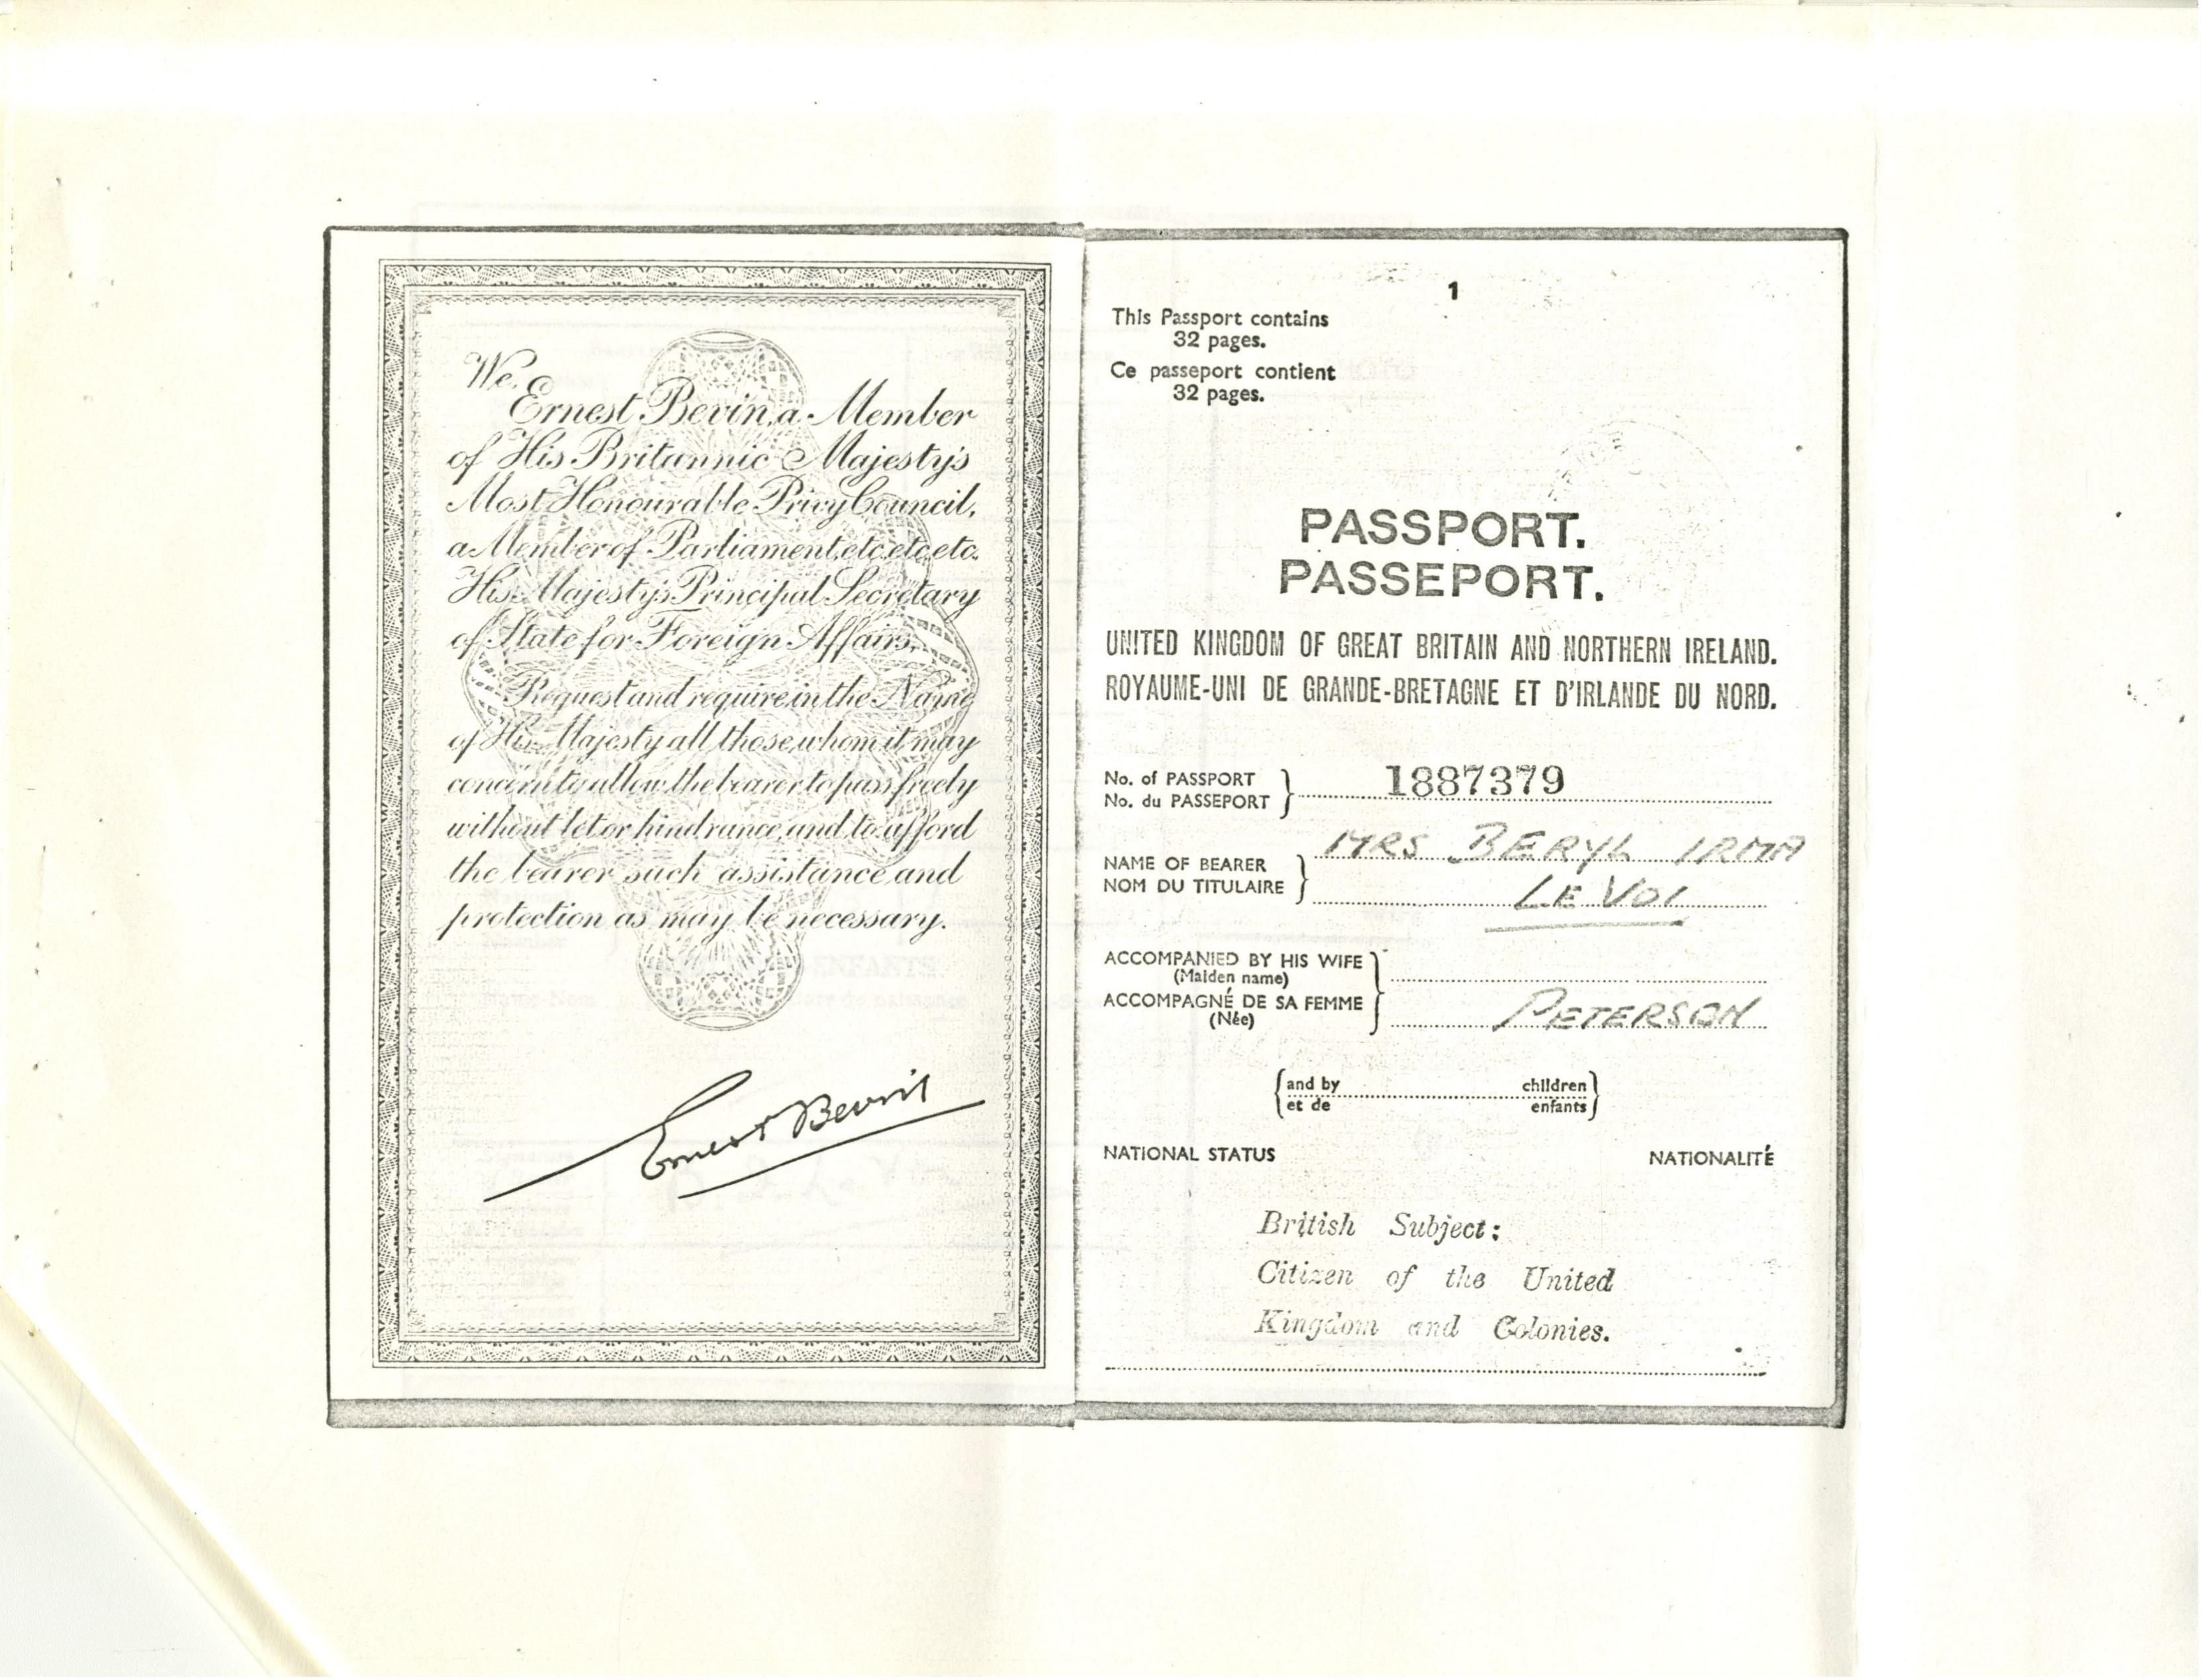 We,
Ernest Bevin, a Member
of His Britannic Majesty's
Most Honourable Privy Council,
a Member of Parliament, etc, etc, etc.
His Majesty's Principal Secretary
of State for Foreign Affairs,
Request and require in the Name
of His Majesty all those whom it may
concern to allow the bearer to pass freely
without let or hindrance, and to afford
the bearer such assistance and
protection as may be necessary.
Ernest Bevin
1
This Passport contains
32 pages.
Ce passeport contient
32 pages.
PASSPORT.
PASSEPORT.
UNITED KINGDOM OF GREAT BRITAIN AND NORTHERN IRELAND.
ROYAUME-UNI DE GRANDE-BRETAGNE ET D'IRLANDE DU NORD.
No. of PASSPORT
No. du PASSEPORT
1887379
NAME OF BEARER
NOM DU TITULAIRE
MRS BERYL IRMA
LE VOI
ACCOMPANIED BY HIS WIFE
(Maiden name)
ACCOMPAGNÉ DE SA FEMME
(Née)
PETERSON
and by children
et de enfants
NATIONAL STATUS NATIONALITÉ
British Subject:
Citizen of the United
Kingdom and Colonies.